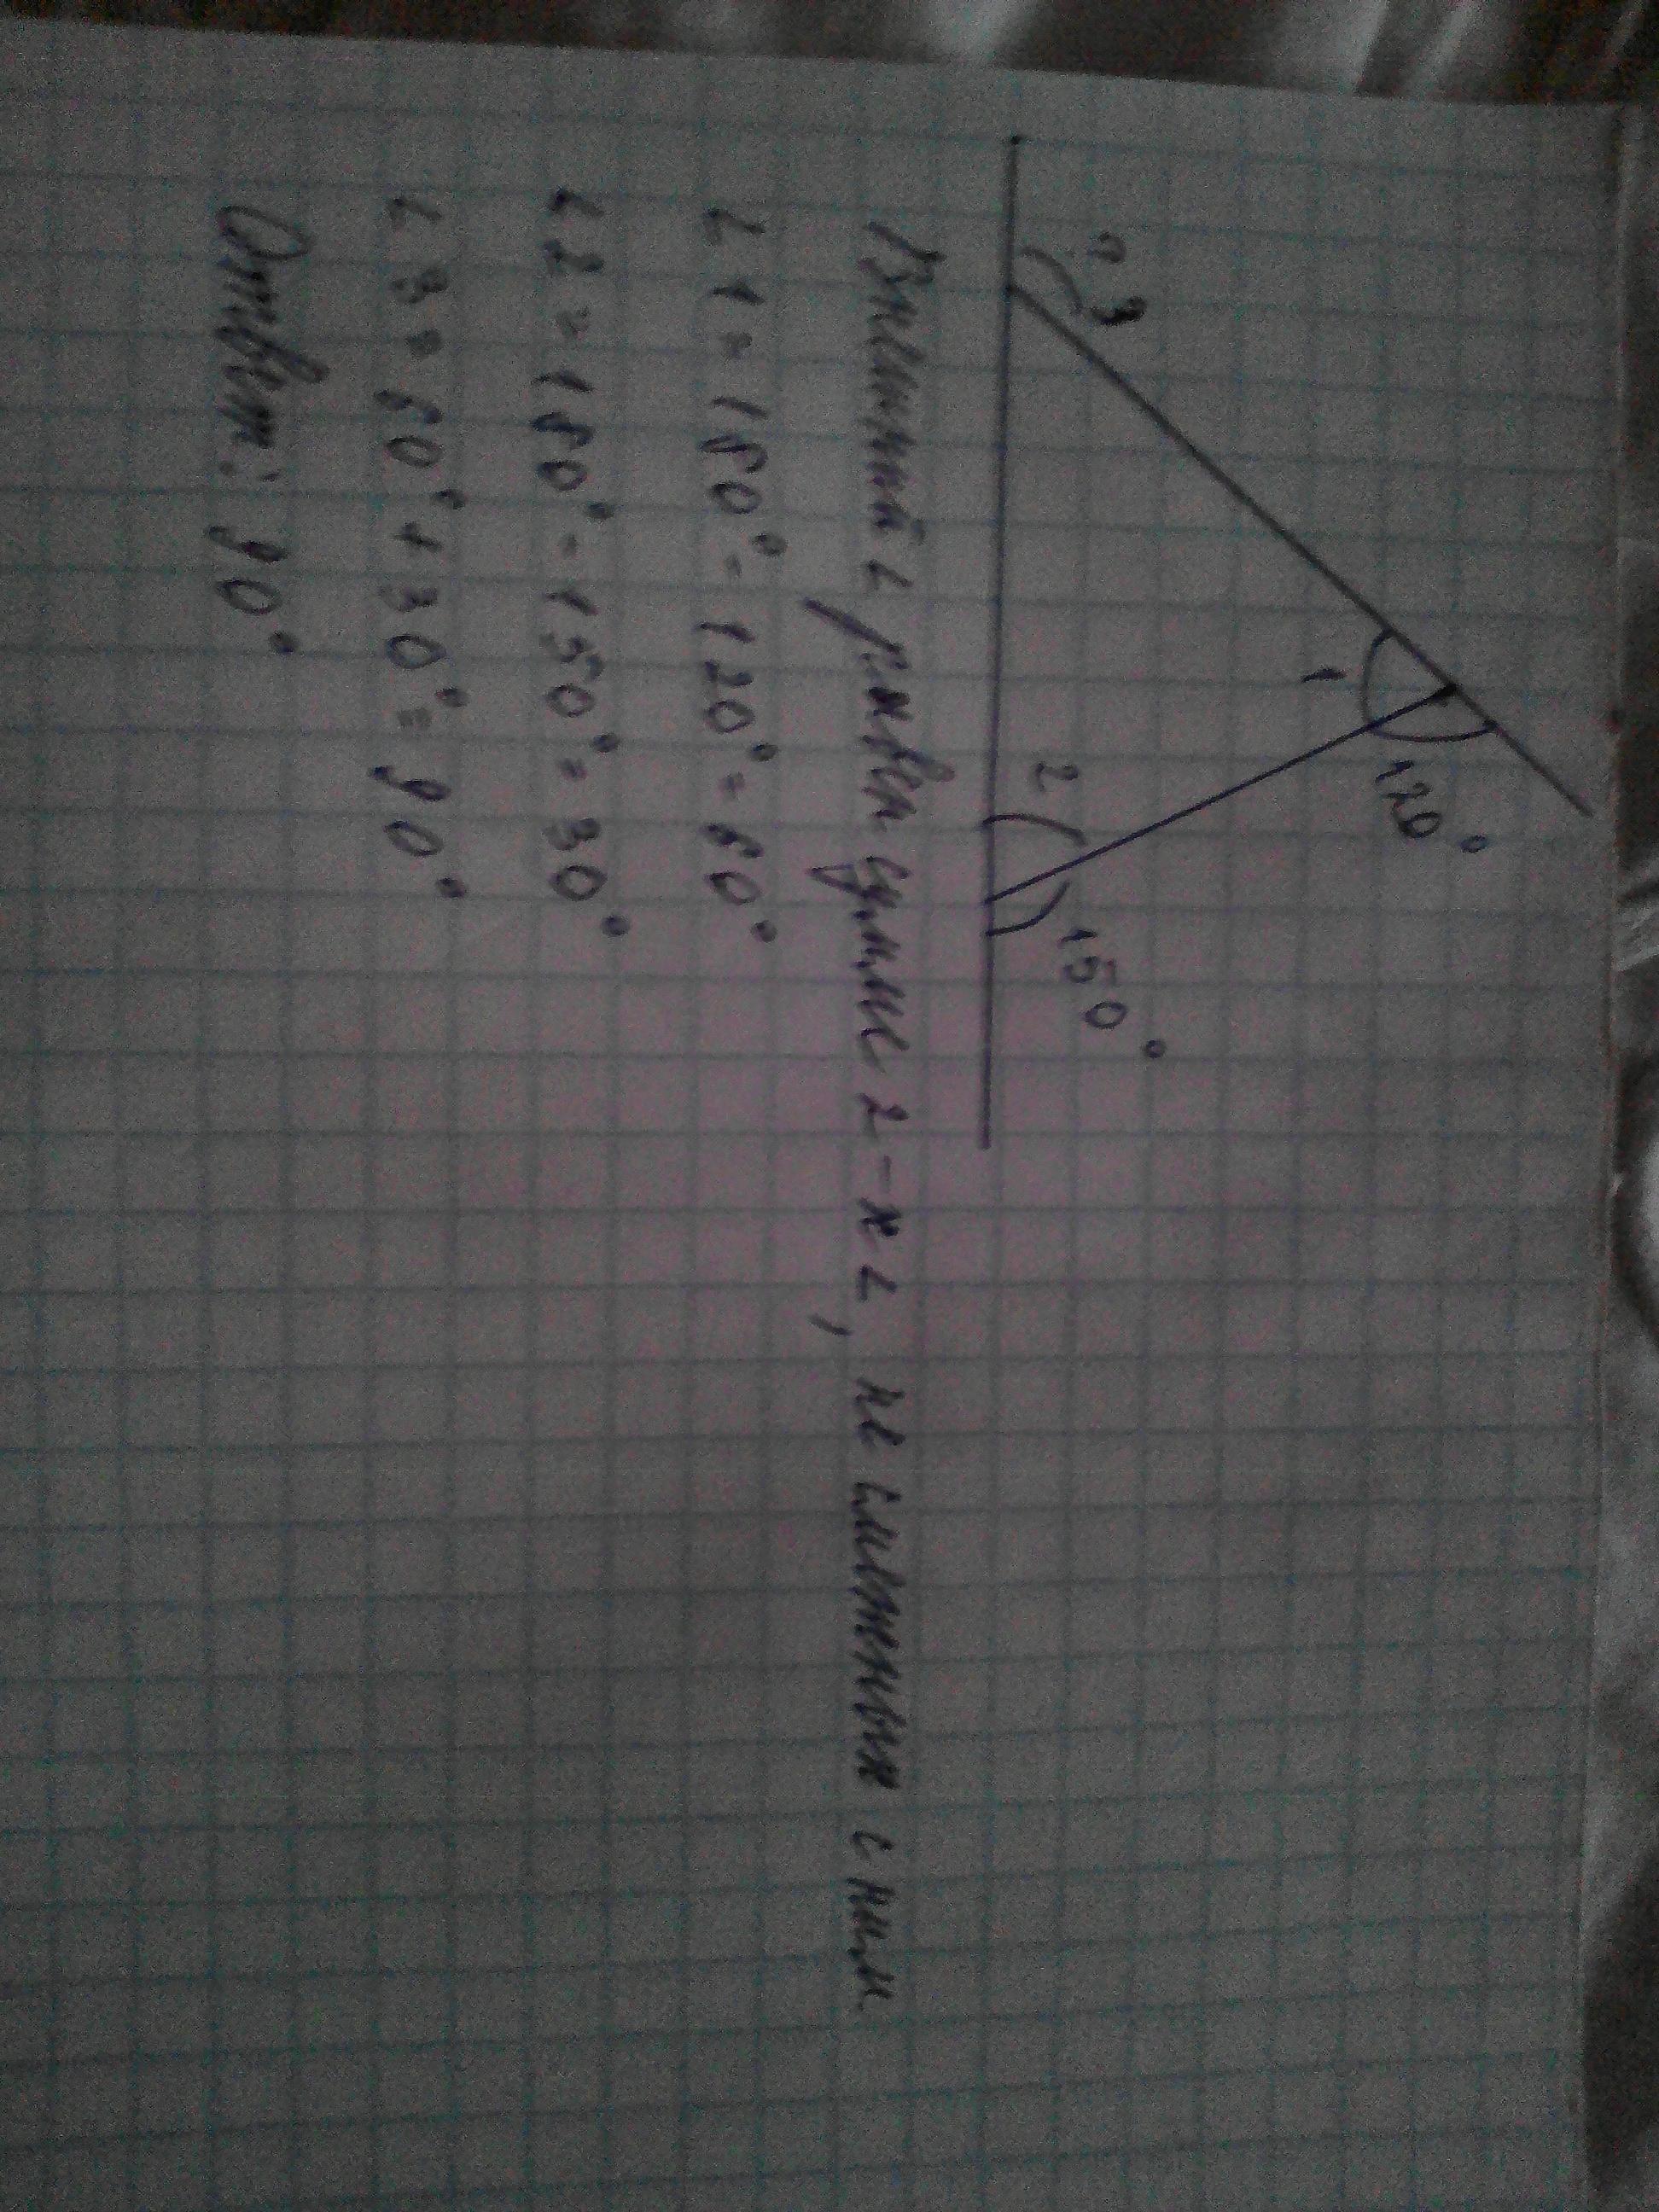 ? 3
1
120°
2
150°
Внешний ∠ равен сумме 2-х ∠, не смежных с ним.
∠ 1 = 180° - 120° = 60°
∠ 2 = 180° - 150° = 30°
∠ 3 = 60° + 30° = 90°
Ответ: 90°